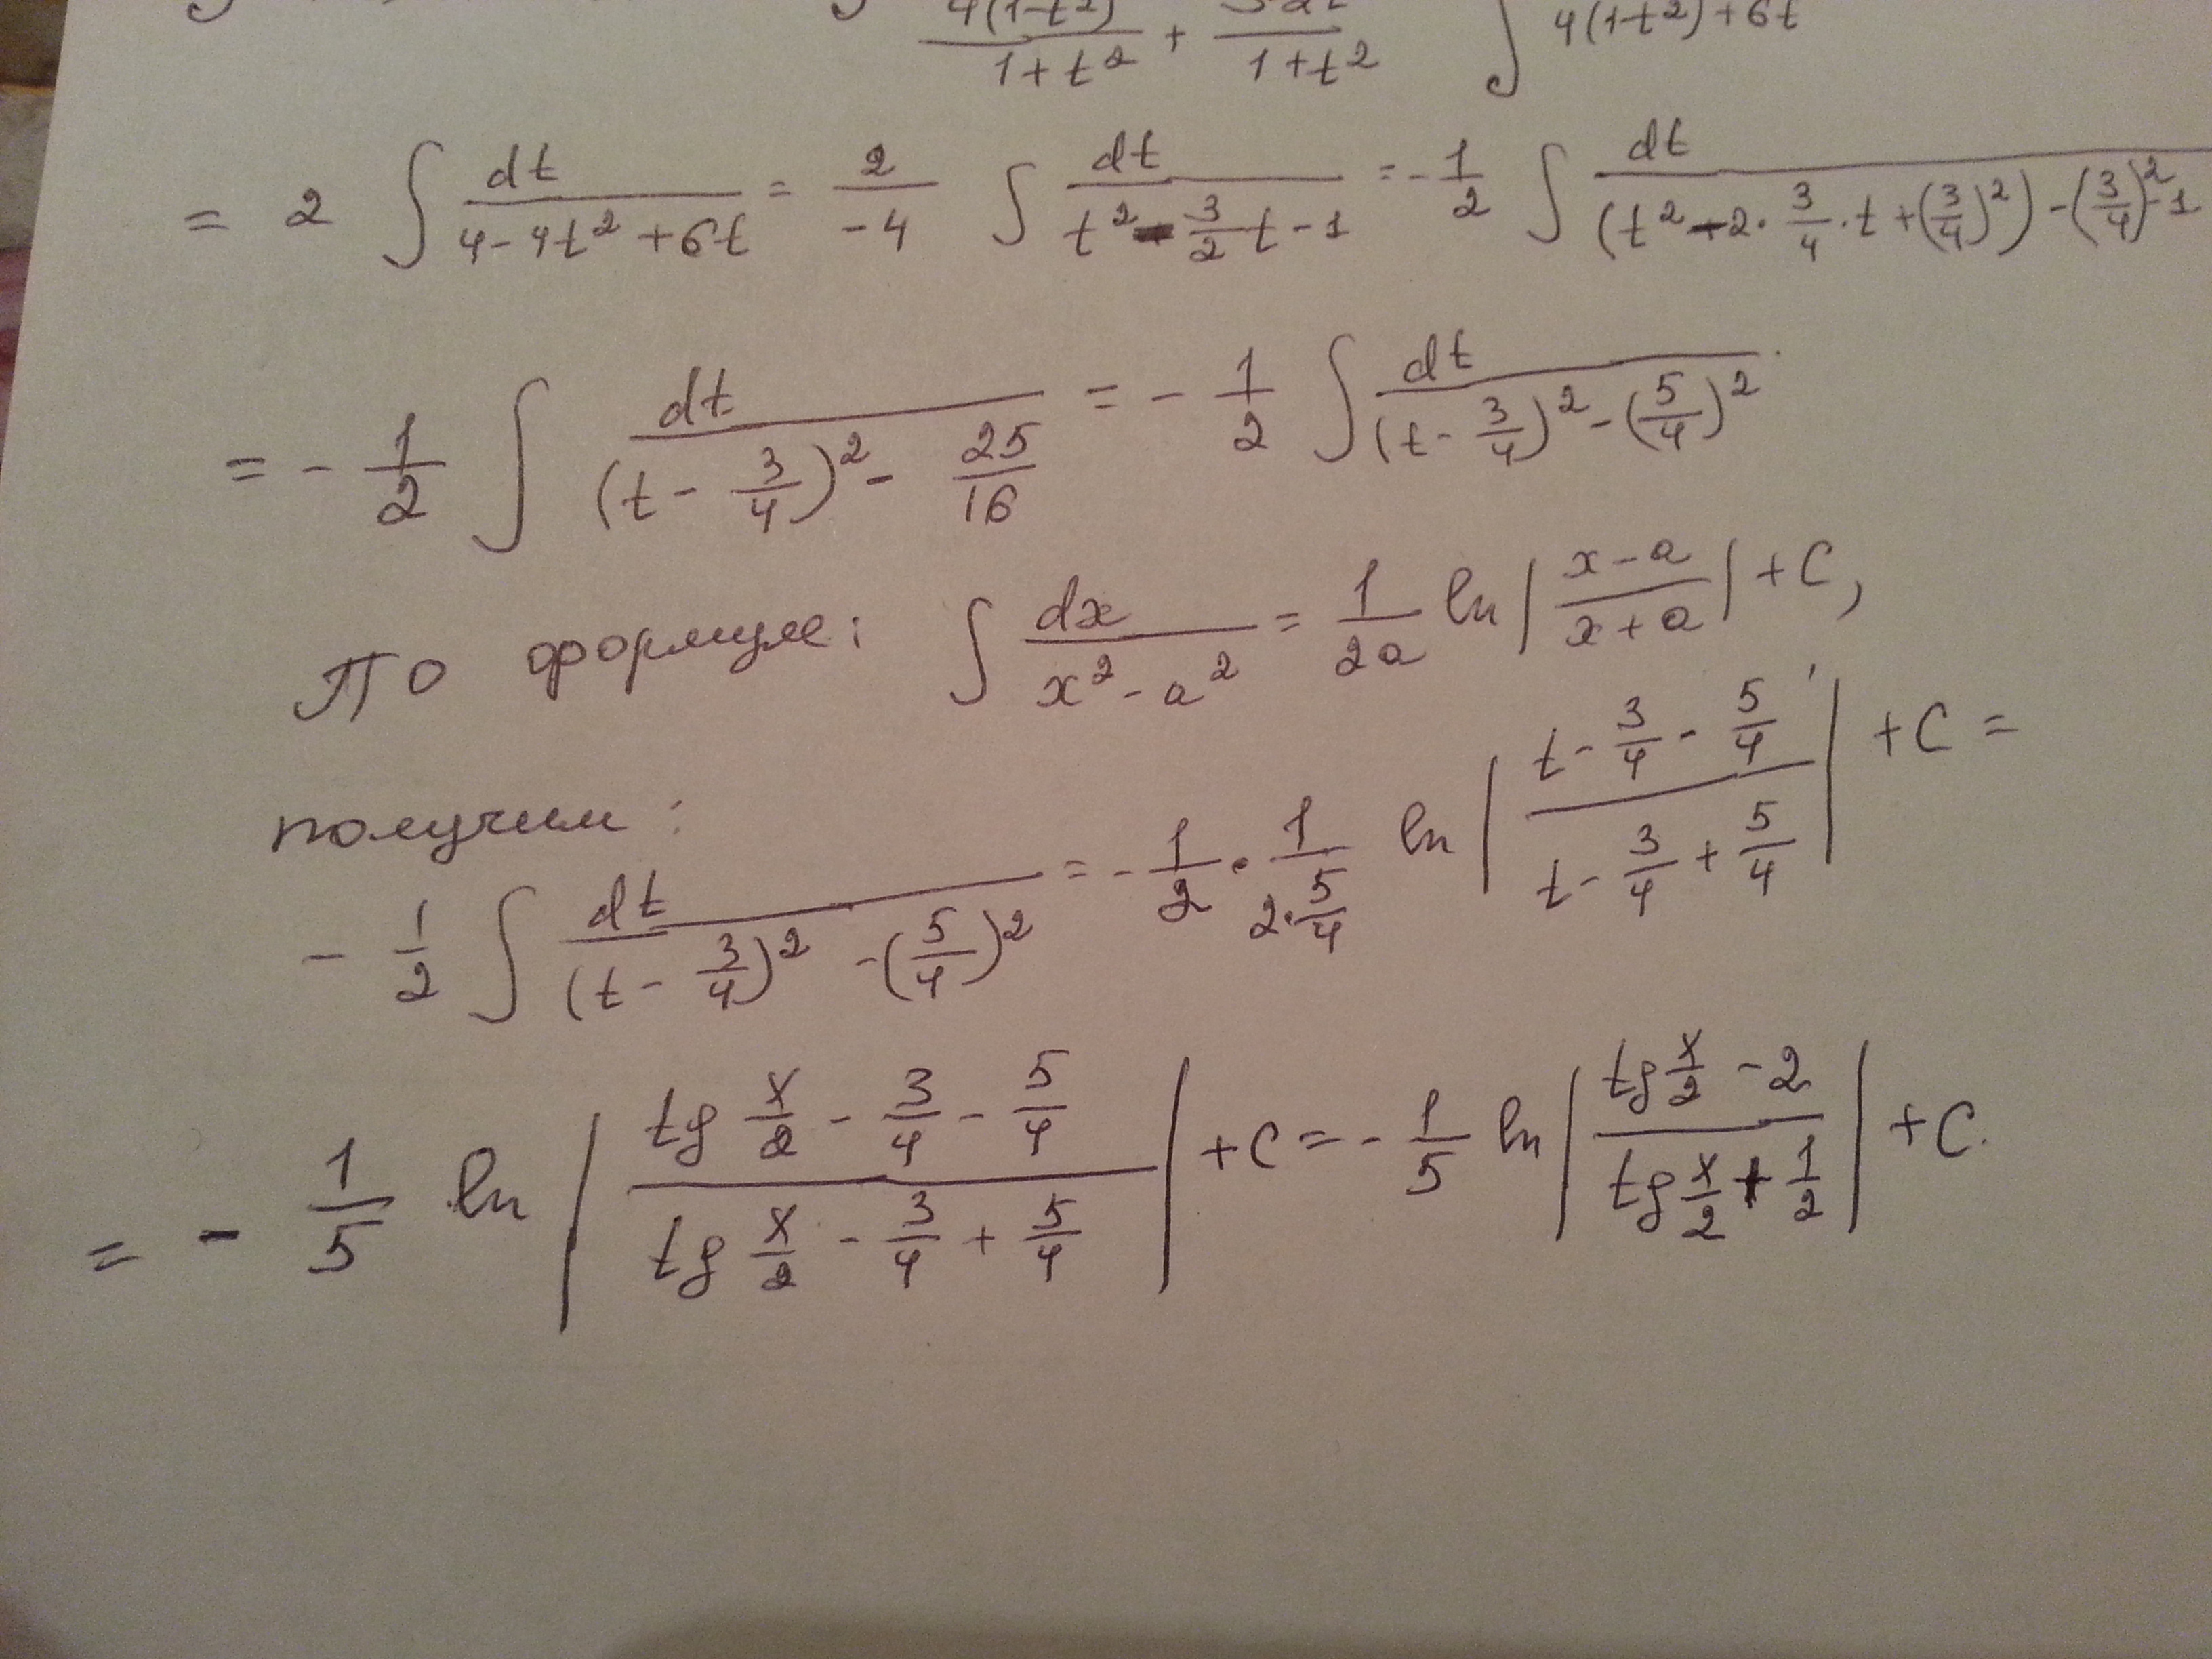 4(1-t²)/(1+t²) + /(1+t²) ∫ 4(1-t²)+6t
= 2 ∫ dt/(4-4t²+6t) = 2/(-4) ∫ dt/(t² - 3/2 t - 1) = -1/2 ∫ dt/((t² - 2·3/4·t + (3/4)²) - (3/4)² - 1)
= - 1/2 ∫ dt/((t - 3/4)² - 25/16) = - 1/2 ∫ dt/((t - 3/4)² - (5/4)²)
По формуле: ∫ dx/(x² - a²) = 1/(2a) ln |(x-a)/(x+a)| + C,
получим:
- 1/2 ∫ dt/((t - 3/4)² - (5/4)²) = - 1/2 · 1/(2·5/4) ln |(t - 3/4 - 5/4)/(t - 3/4 + 5/4)| + C =
= - 1/5 ln |(tg x/2 - 3/4 - 5/4)/(tg x/2 - 3/4 + 5/4)| + C = - 1/5 ln |(tg x/2 - 2)/(tg x/2 + 1/2)| + C.